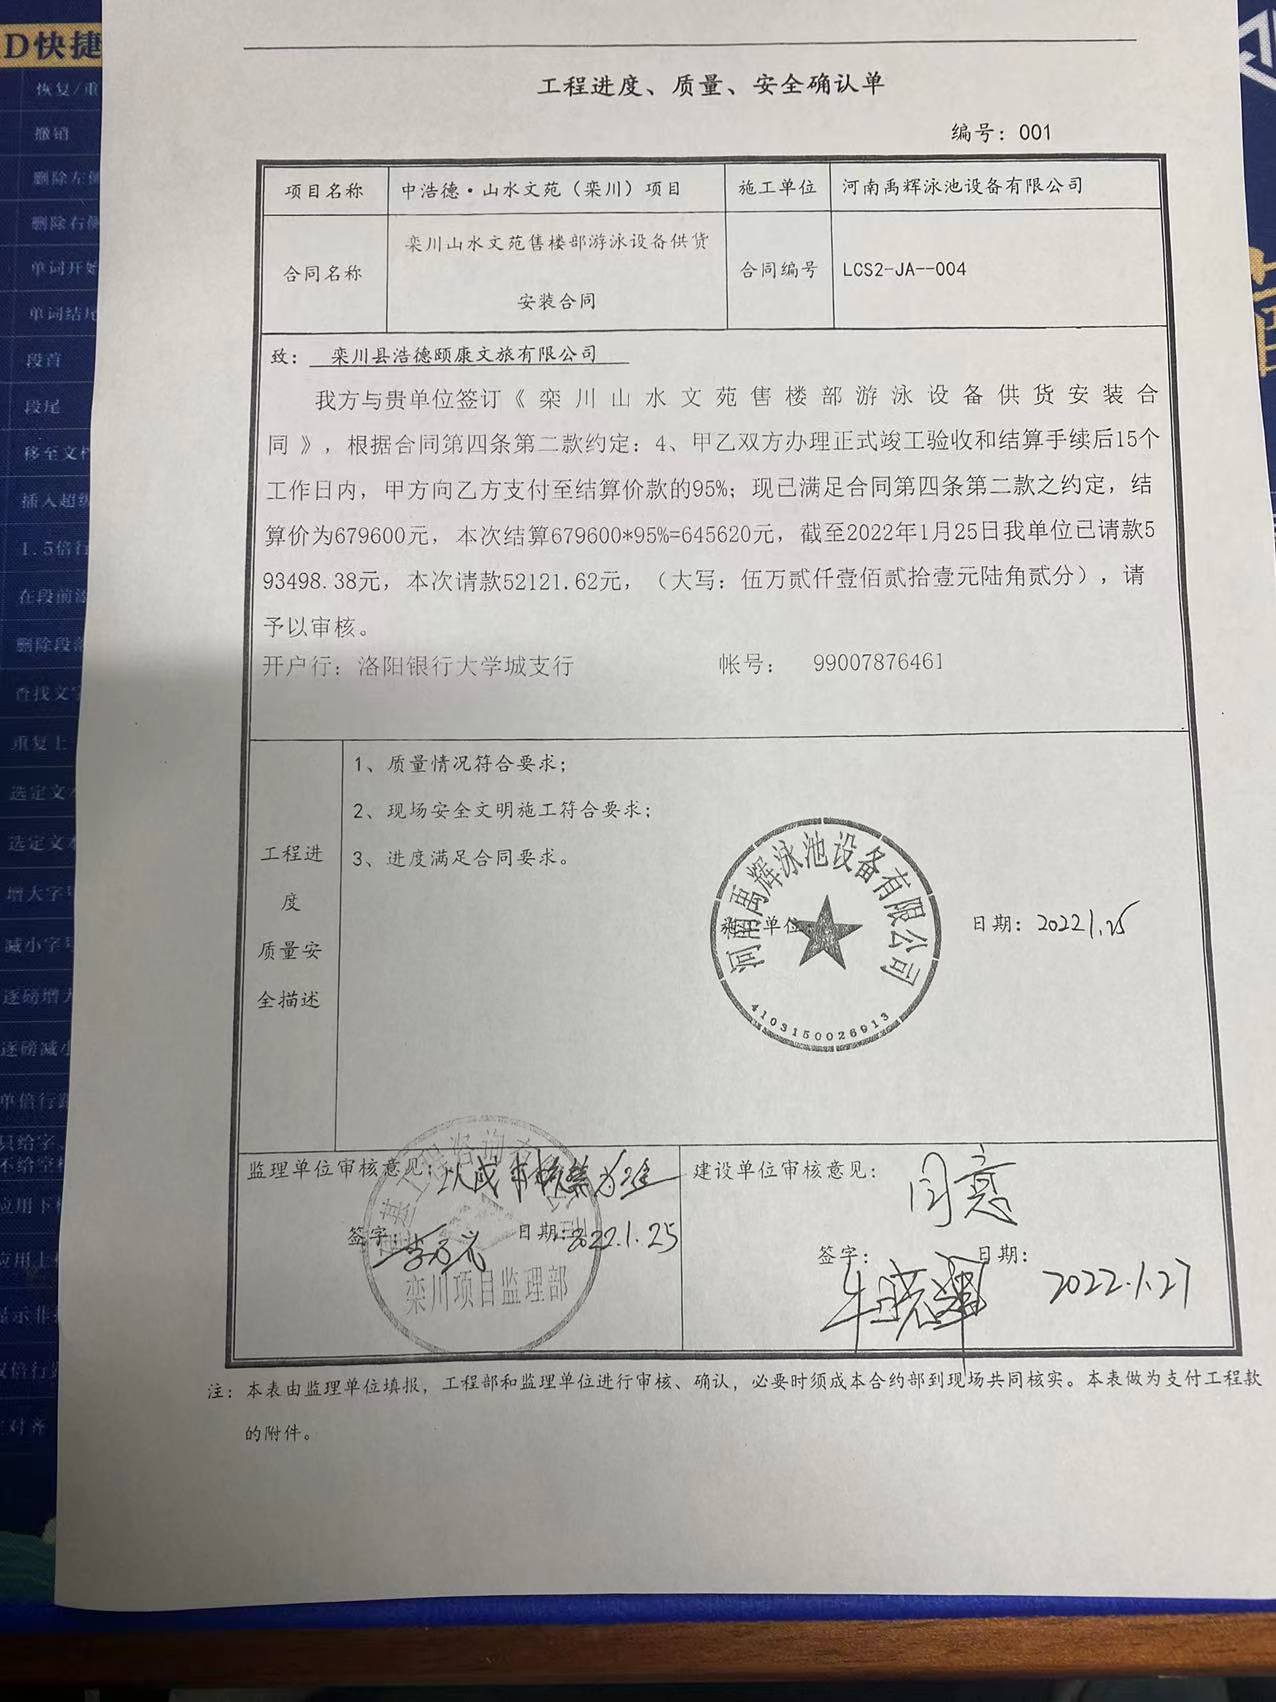 D快捷
恢复/重
撤销
删除左侧
删除右侧
单词开始
单词结尾
段首
段尾
移至文档
插入超级
1.5倍行
在段前添
删除段落
查找文字
重复上
选定文本
选定文本
增大字号
减小字号
逐磅增大
逐磅减小
单倍行距
只给字、
不给空格
应用下标
应用上标
显示非打
双倍行距
对齐
工程进度、质量、安全确认单
编号：001
项目名称 中浩德·山水文苑（栾川）项目 施工单位 河南禹辉泳池设备有限公司
合同名称 栾川山水文苑售楼部游泳设备供货
安装合同 合同编号 LCS2-JA--004
致： 栾川县浩德颐康文旅有限公司
我方与贵单位签订《栾川山水文苑售楼部游泳设备供货安装合
同》，根据合同第四条第二款约定：4、甲乙双方办理正式竣工验收和结算手续后15个
工作日内，甲方向乙方支付至结算价款的95%；现已满足合同第四条第二款之约定，结
算价为679600元，本次结算679600*95%=645620元，截至2022年1月25日我单位已请款5
93498.38元，本次请款52121.62元，（大写：伍万贰仟壹佰贰拾壹元陆角贰分），请
予以审核。
开户行：洛阳银行大学城支行 帐号： 99007876461
工程进
度
质量安
全描述
1、质量情况符合要求；
2、现场安全文明施工符合要求；
3、进度满足合同要求。
河南禹辉泳池设备有限公司
单位
4103150026913
日期：2022.1.25
监理单位审核意见：以成本核禁为准
签字： 日期：2022.1.25
基工程咨询
栾川项目监理部
建设单位审核意见：同意
签字：牛晓辉 日期：2022.1.27
注：本表由监理单位填报，工程部和监理单位进行审核、确认，必要时须成本合约部到现场共同核实。本表做为支付工程款
的附件。